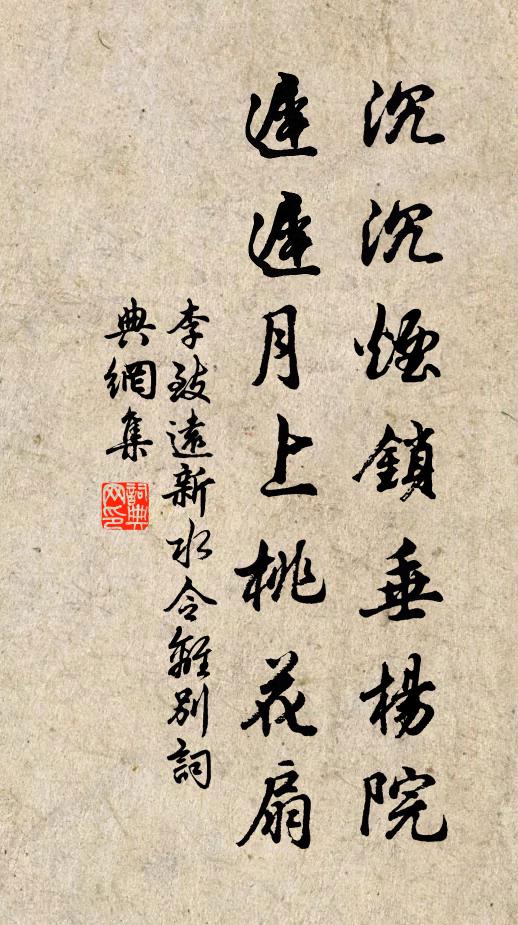 沉沉煙鎖垂楊院
遲遲月上桃花扇
李致遠新水令離別詞
典網集
詞典
网印